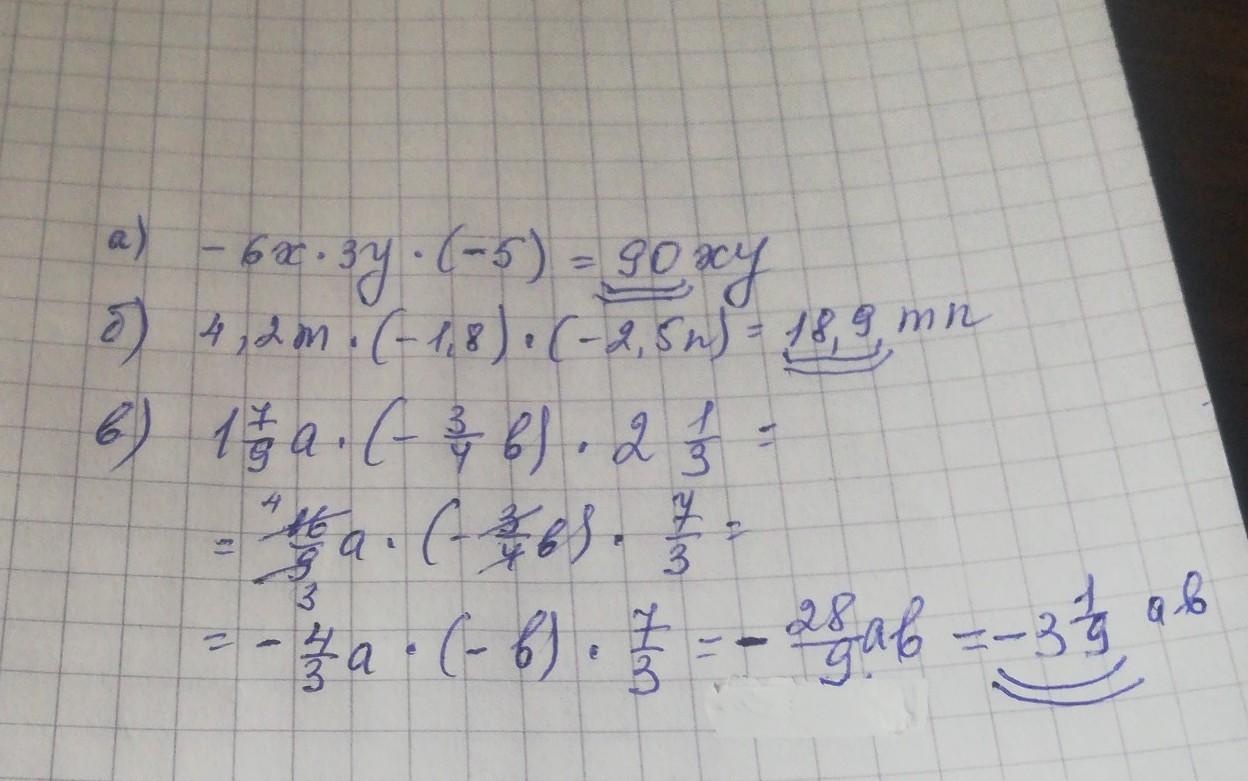 а) -6x·3y·(-5) = 90xy
б) 4,2m·(-1,8)·(-2,5n) = 18,9mn
в) 1 7/9 a·(- 3/4 b)·2 1/3 =
= 4 16/9 3 a·(- 3/4 b)· 7/3 =
= - 4/3 a·(- b)· 7/3 = - 28/9 ab = -3 1/9 ab